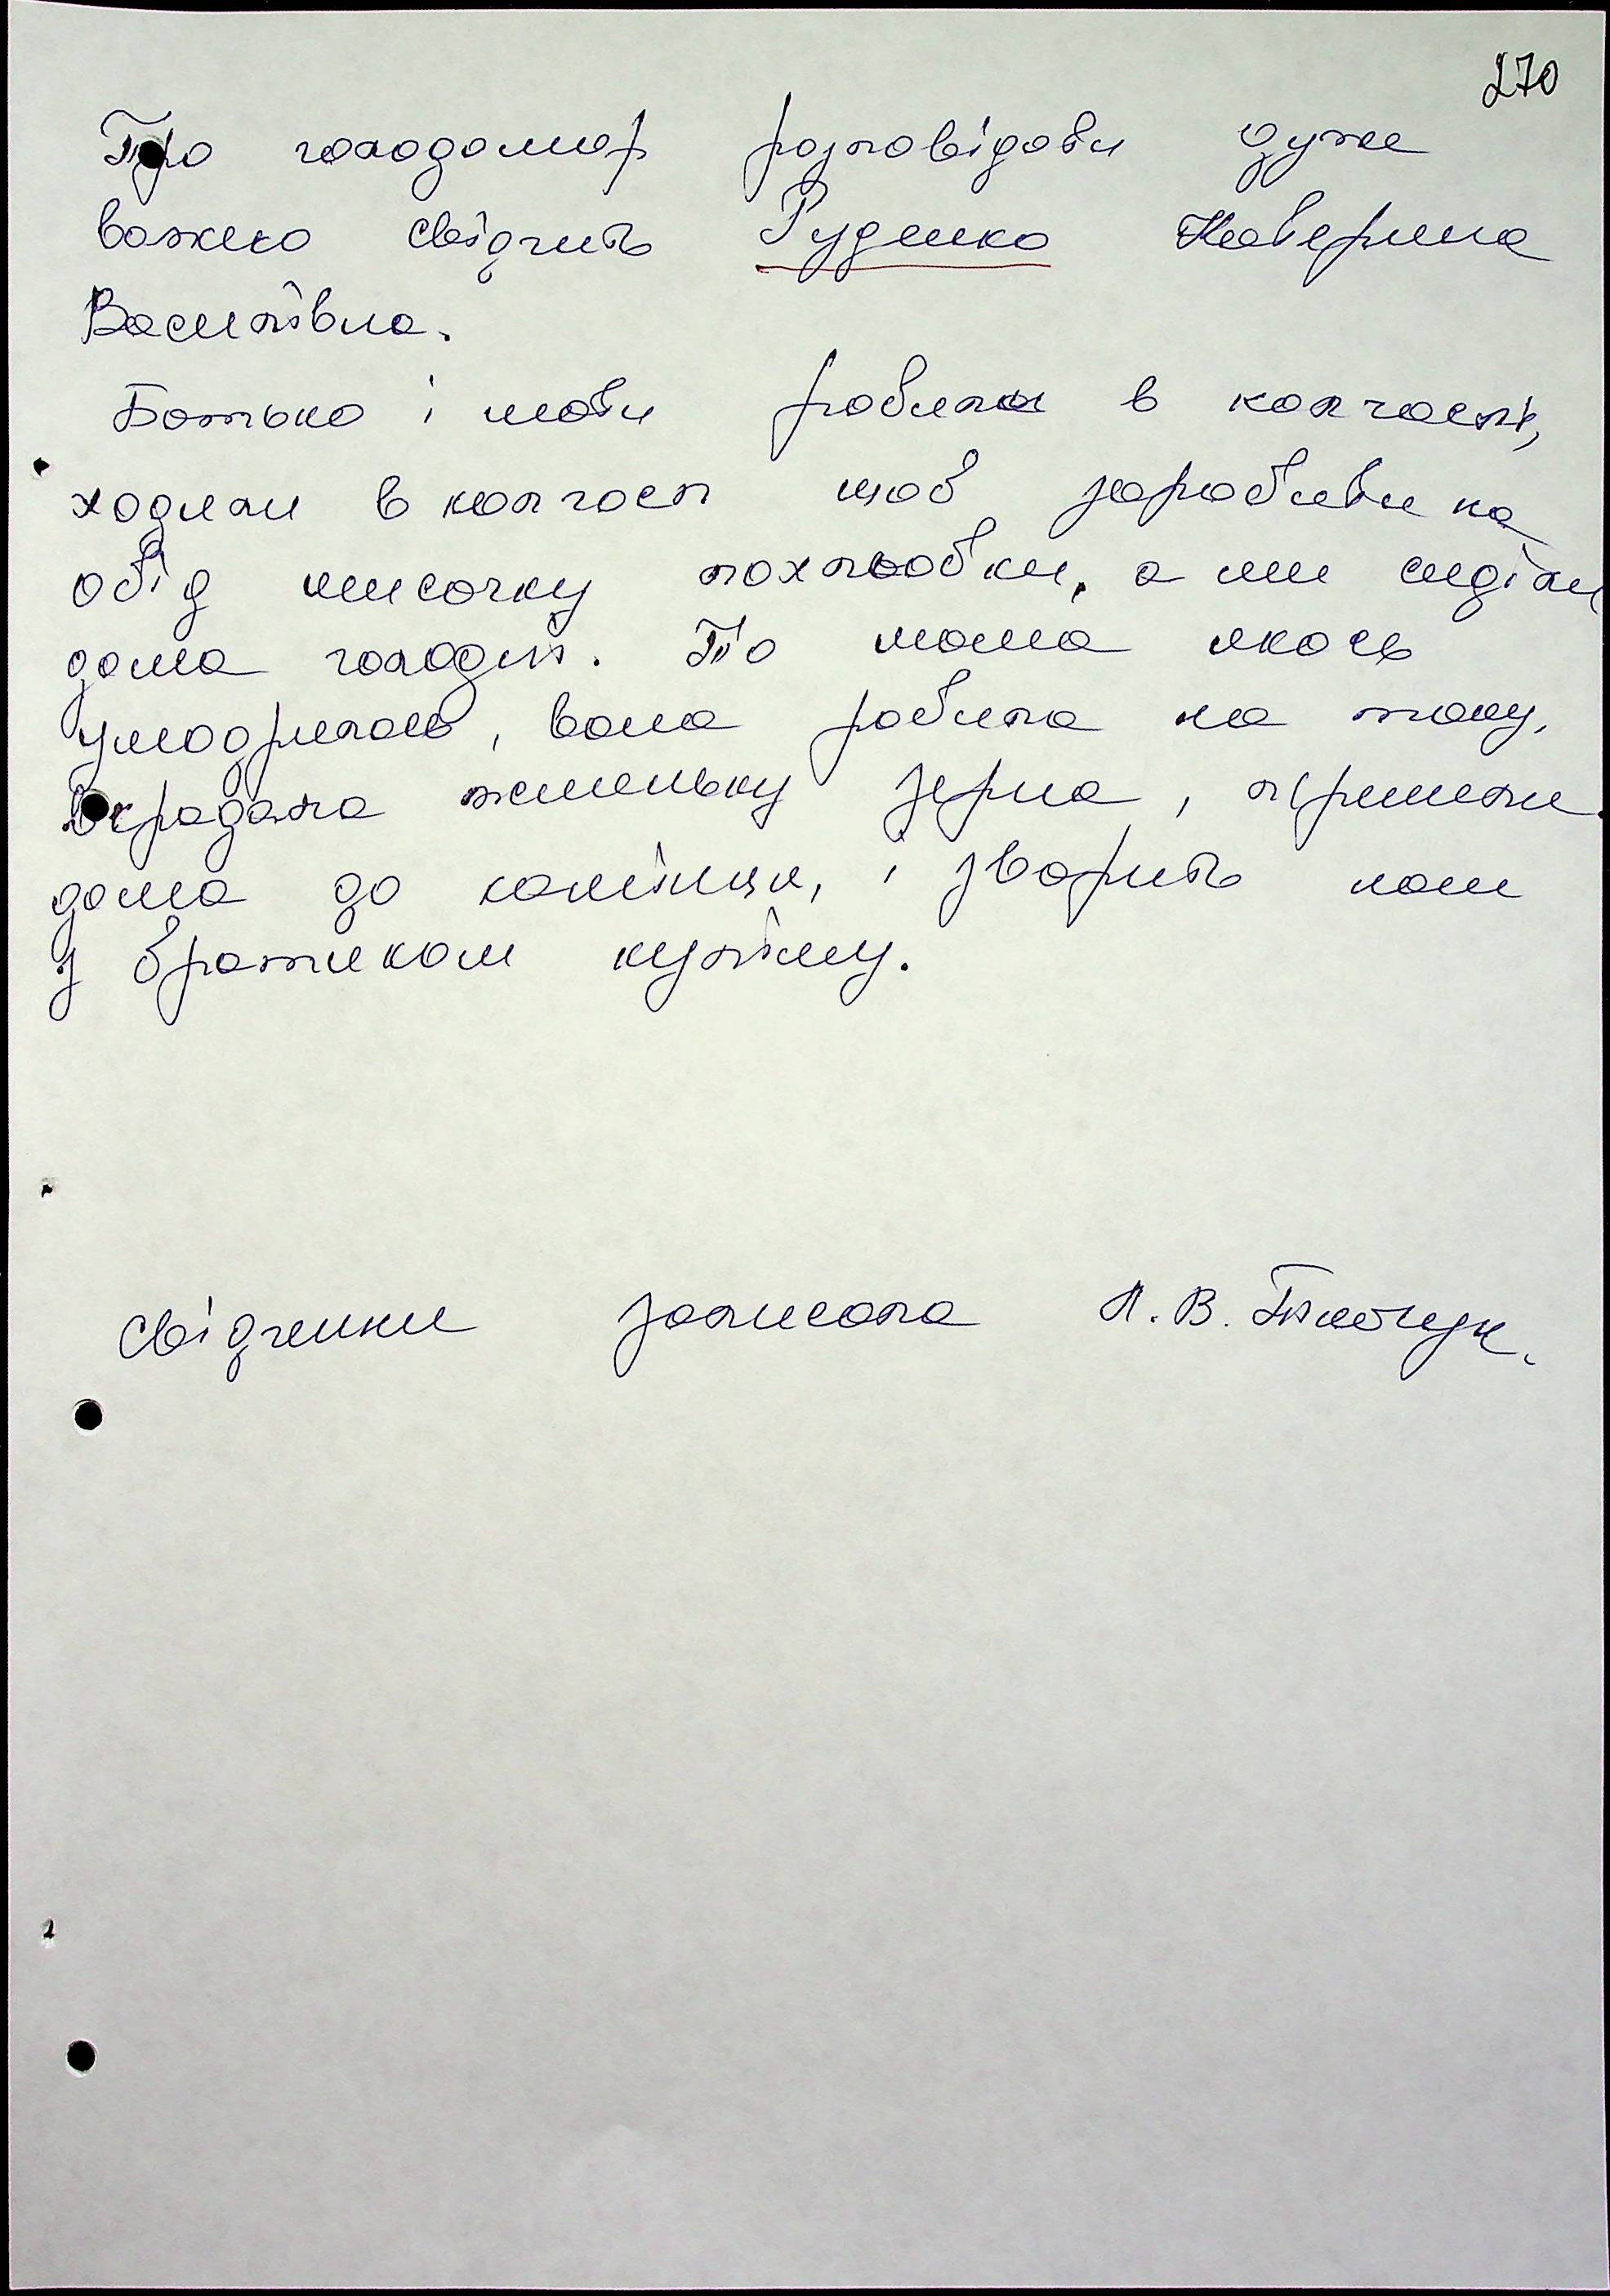 270
Про голодомор розповідати дуже
важко свідчить Руденко Катерина
Василівна.
Батько і мати робили в колгоспі,
ходили в колгосп щоб заробити на
обід мисочку похльобки, а ми сиділи
дома голодні. То мама якось
умодрилась, вона робила на току,
вкрадала жменьку зерна, принесли
дома до комінця, і зварить нам
з братиком кулішу.
Свідчення записала Л. В.